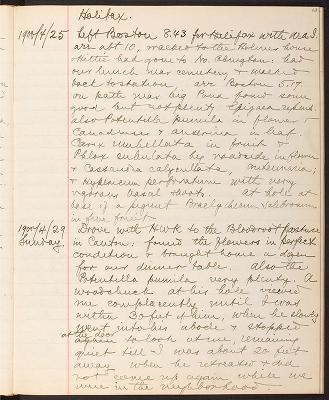 Halifax.
1900/4/25 Left Boston 8.43 for Halifax with dea J.
arr abt 10, walked to the Holmes house
Hattie had gone to No. Abington: had
our lunch near cemetery & walked
back to station, arr Boston 5.17.
in path near big found some
good but not plenty Epigaea repens.
also Potentilla pumila in flower &
Canadensis & anserina in leaf.
Carex umbellata in fruit &
Phlox subulata by roadside in flower
& Cassandra calyculata,
& Hypericum perforatum with very
vigorous basal shoots. at
base of a Brachythecium
in fine fruit.
1900/4/29 Drove with HWK to the Bloodroot pasture
Sunday. in Canton: found the flowers in perfect
condition & brought home a dozen
for our dinner table, also the
Potentilla pumila very plenty. A
woodchuck at his hole viewed
me complacently until I was
within 30 feet of him, when he slowly
went into his abode & stopped
at the door
again to look at me, remaining
quiet till I was about 20 feet
away when he retreated & did
not come up again while we
were in the neighborhood.